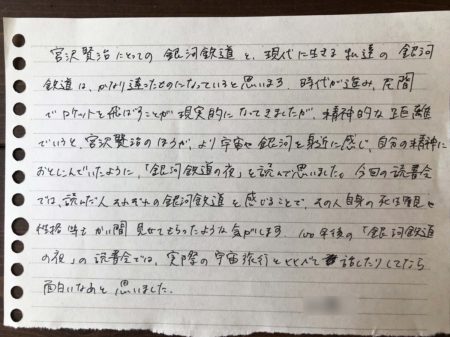 宮沢賢治にとっての銀河鉄道と、現代に生きる私達の銀河
鉄道は、かなり違ったものになっていると思います。時代が進み、民間
でロケットを飛ばすことが現実的になってきましたが、精神的な距離
でいうと、宮沢賢治のほうが、より宇宙や銀河を身近に感じ、自分の精神に
おとしこんでいたように、「銀河鉄道の夜」を読んで思いました。今回の読書会
では、読んだ人それぞれの銀河鉄道を感じることで、その人自身の死生観や
性格等もかい間見せてもらったような気がします。100年後の「銀河鉄道
の夜」の読書会では、実際の宇宙旅行とくらべて話したりしてたら
面白いなあと思いました。